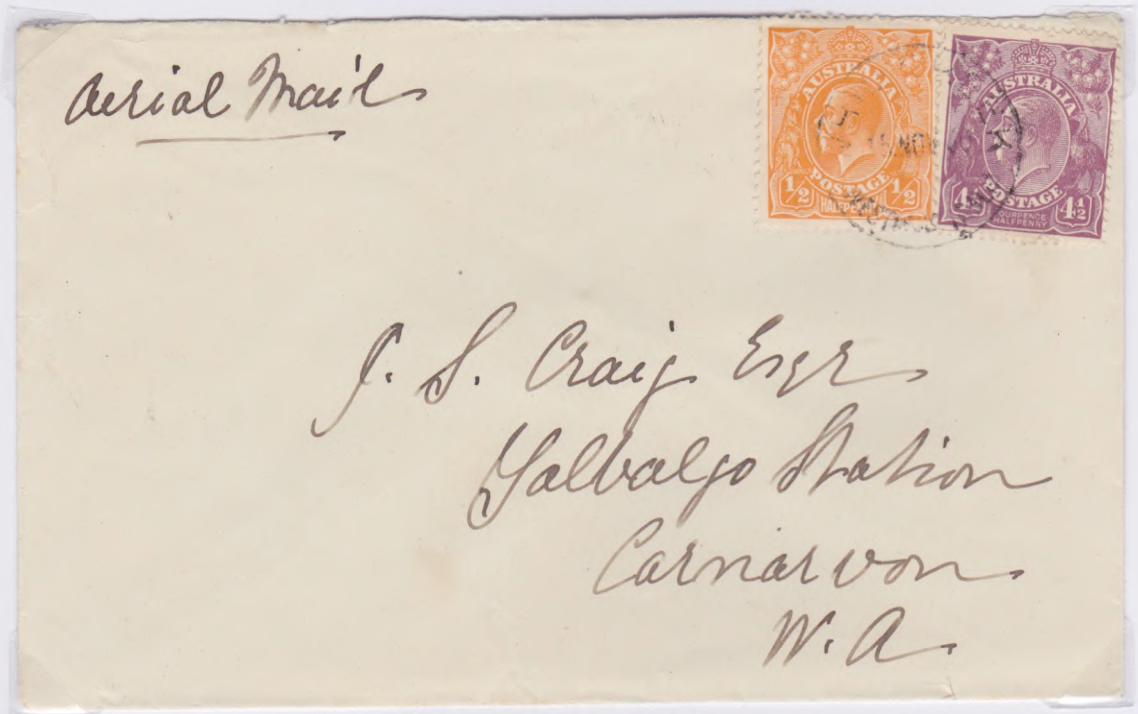 Aerial Mail
AUSTRALIA
POSTAGE
1/2 1/2
HALFPENNY
AUSTRALIA
POSTAGE
4½ 4½
FOURPENCE
HALFPENNY
NOV
J. S. Craig Esqr
Yalbalgo Station
Carnarvon
W. A.